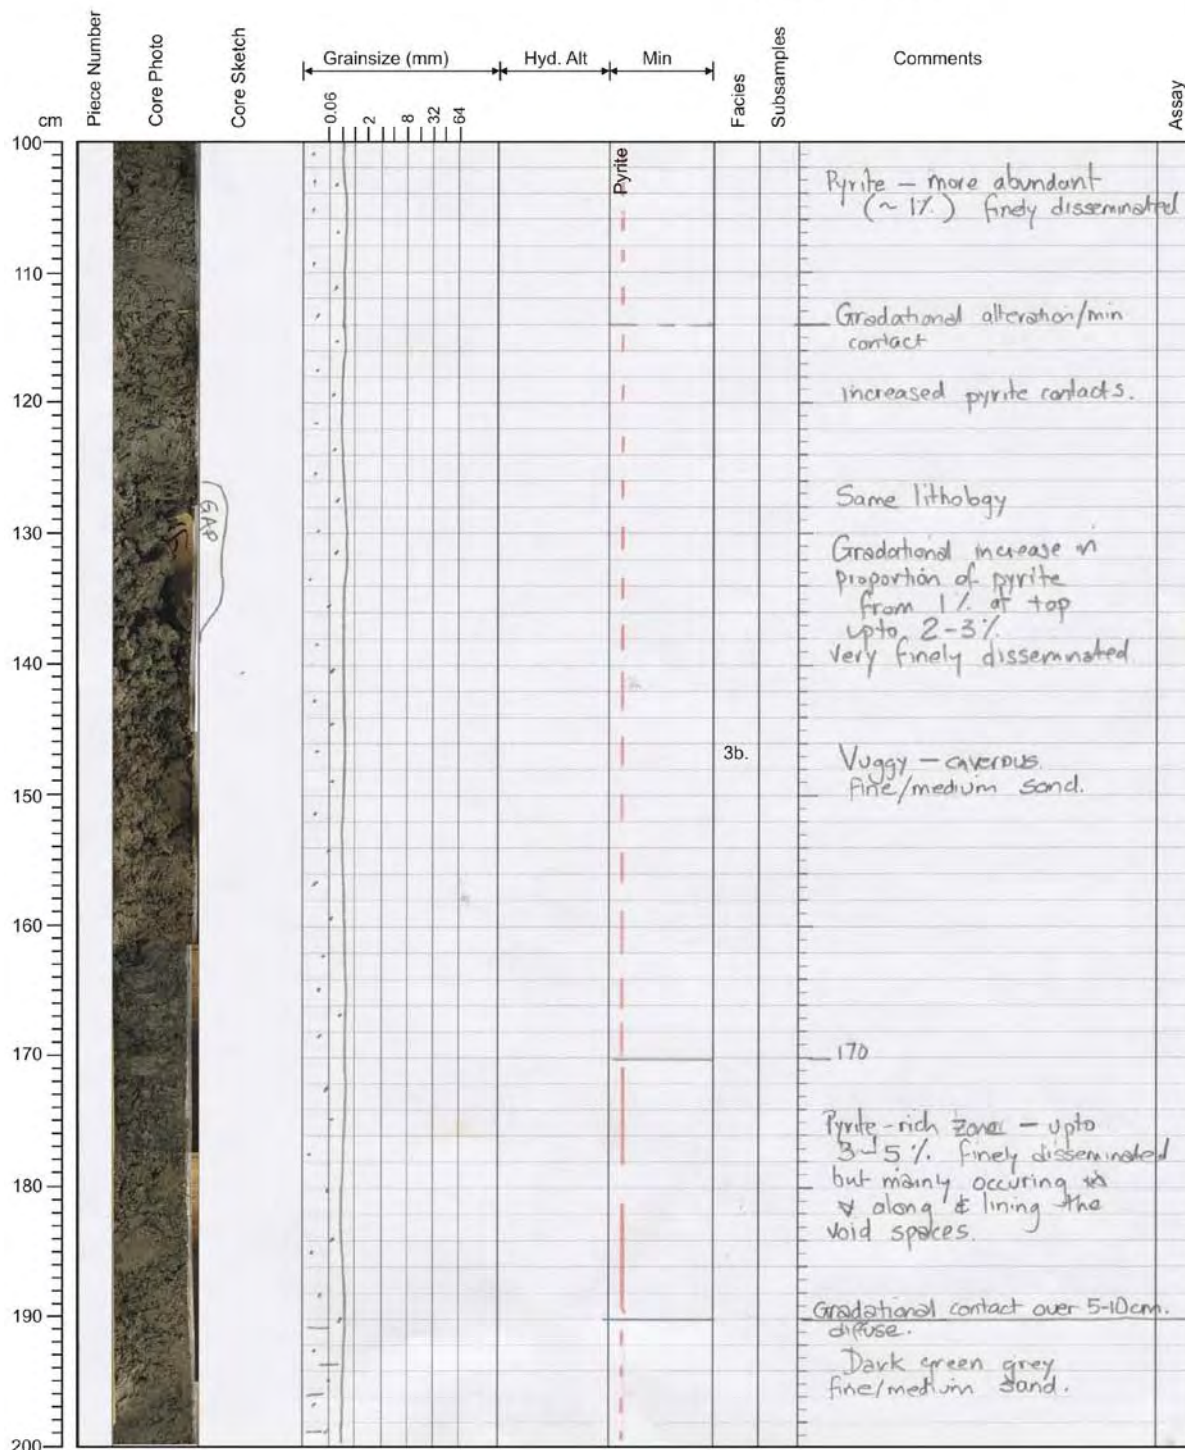 Piece Number
Core Photo
Core Sketch
Grainsize (mm)
Hyd. Alt
Min
Facies
Subsamples
Comments
Assay
cm
0.06
2
8
32
64
100
110
120
130
140
150
160
170
180
190
200
GAP
Pyrite
3b.
Pyrite – more abundant
(~ 1%) finely disseminated
Gradational alteration/min
contact
increased pyrite contacts.
Same lithology
Gradational increase in
proportion of pyrite
from 1% at top
upto 2-3%
very finely disseminated
Vuggy – cavernous
fine/medium sand.
170
Pyrite-rich zone – upto
3-5% finely disseminated
but mainly occuring
along & lining the
void spaces.
Gradational contact over 5-10cm.
diffuse.
Dark green grey
fine/medium sand.